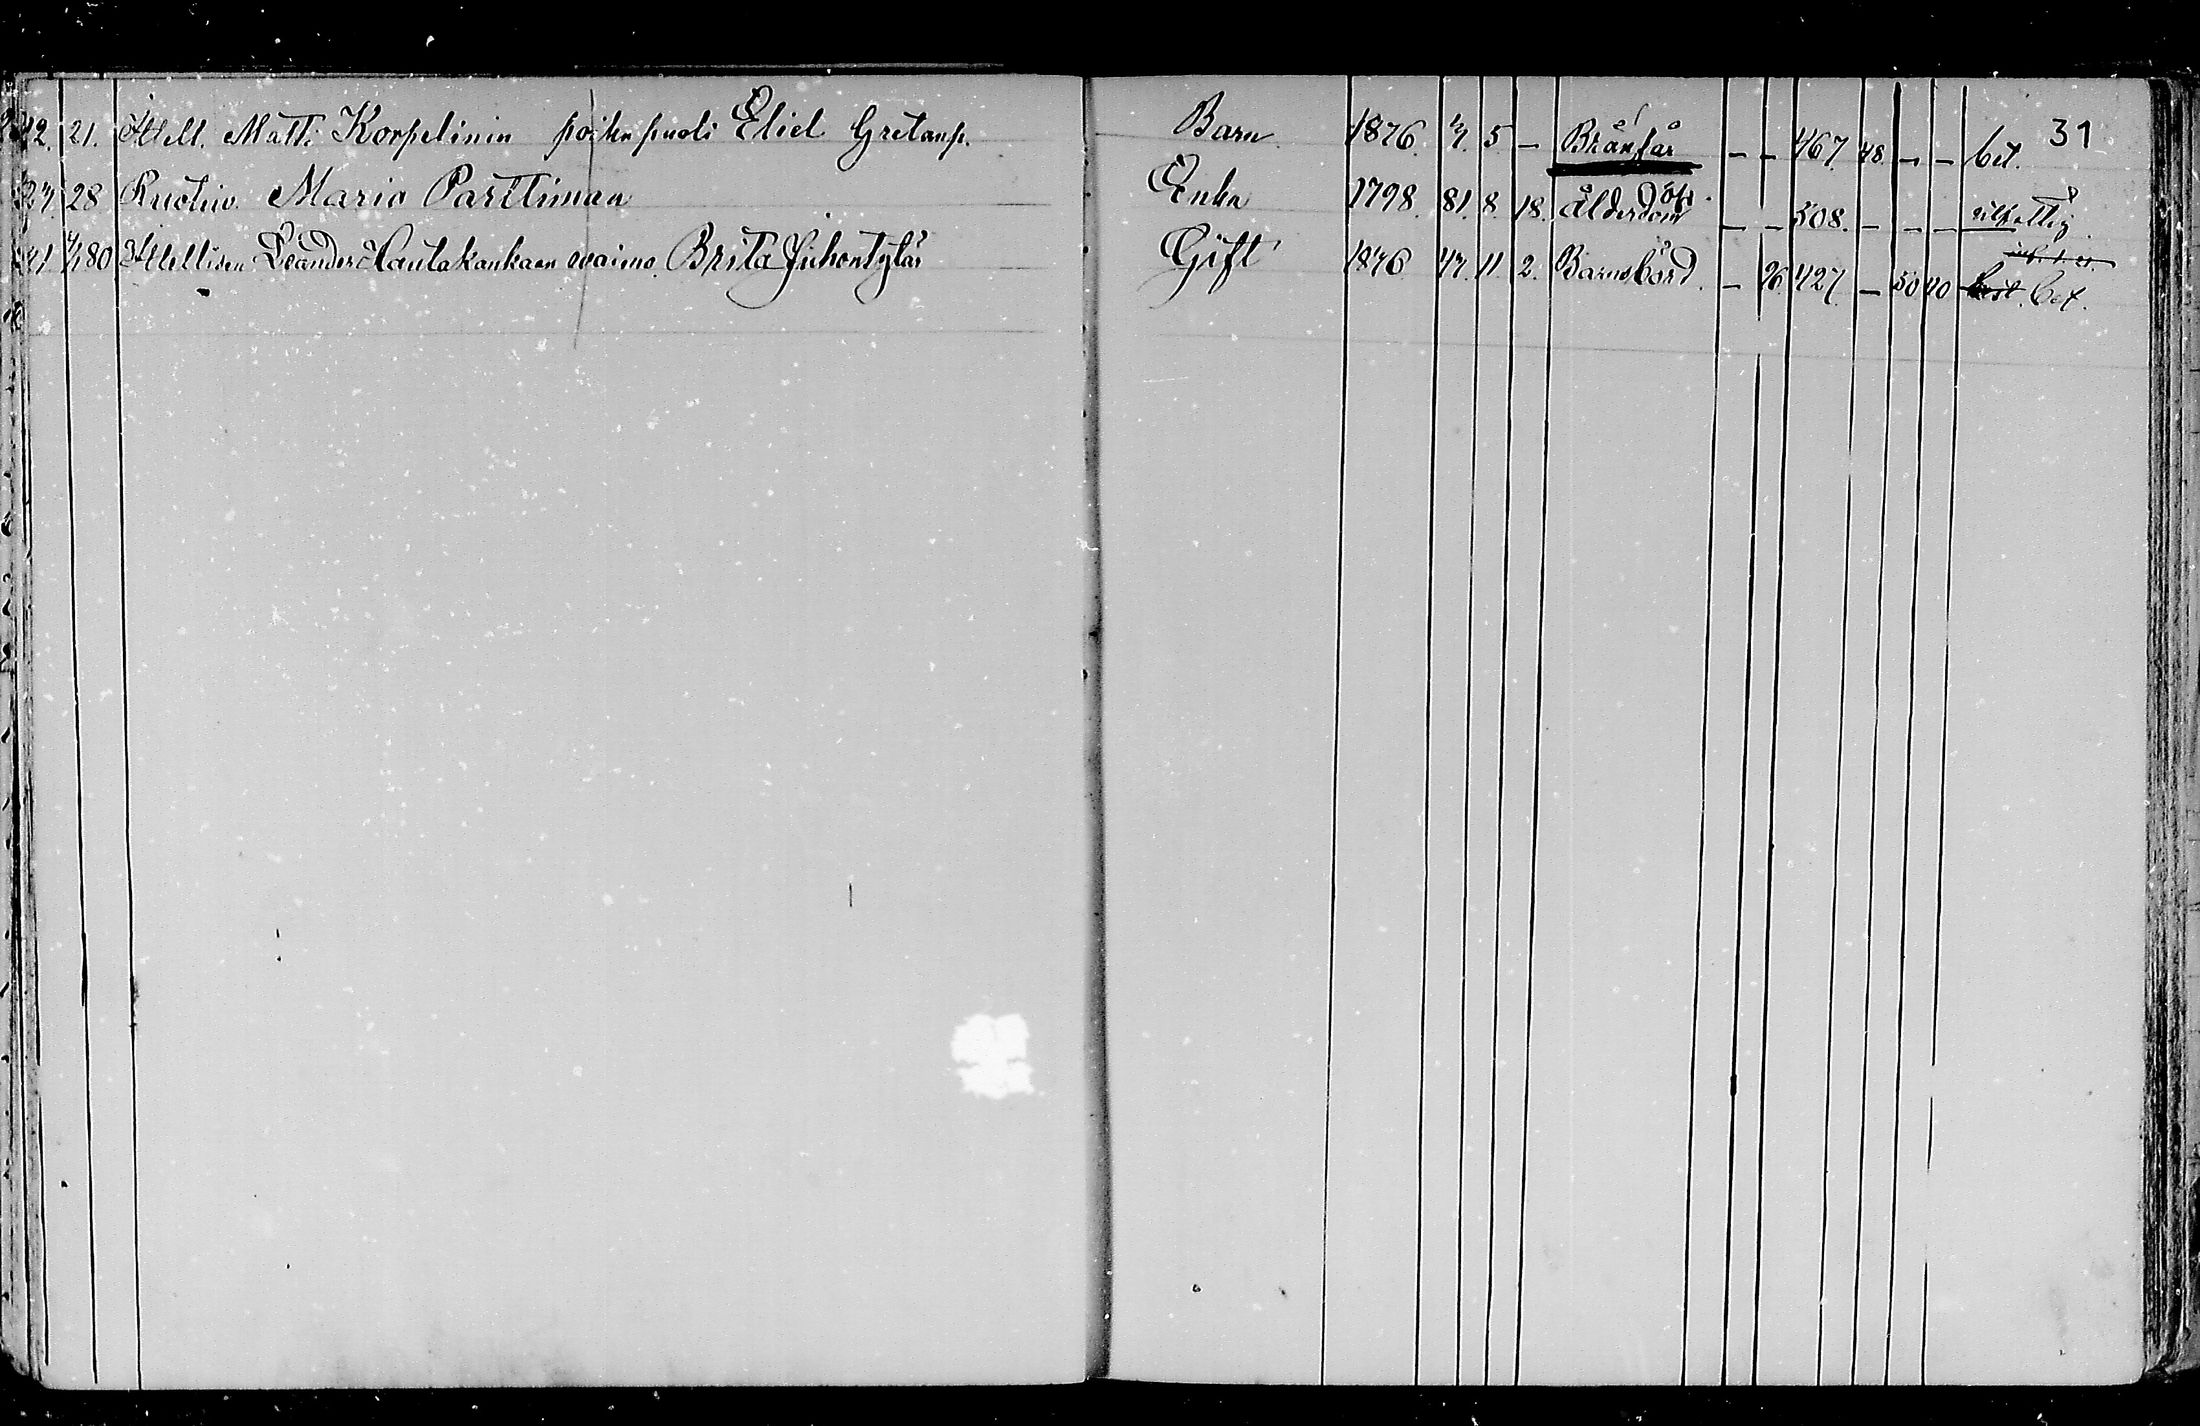 31
12. 21. Itell. Matti Korpelinin poikapuoli Eliel Gretanp. Barn 1876. 5 — Brånsår — — 467. 48 — — bet.
27. 28 Ruotiv. Maria Parttiman Enka 1798. 81. 8 18. Ålderdom — — 508. — — —
41 80 Itellisen Leander Hautakankaan vaimo Brita Juhontytär Gift 1846 47. 11. 2. Barnsbörd. — 96. 427. — 50 40 bet.